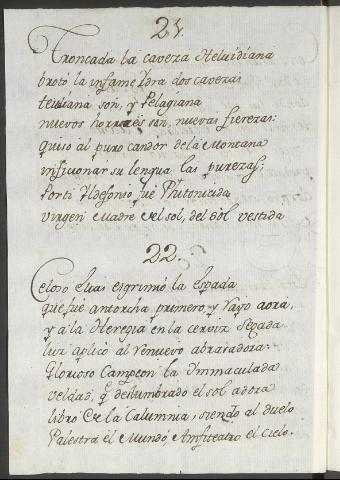 21.
Troncada la caveza Helvidiana
brotó la infame Idra dos cavezas
teudiana son, y Pelagiana
nuevos horrores son, nuevas fierezas:
quiso al puro candor de la Montana
inficionar su lengua las purezas;
Por ti Ildefonso fue Phitonizada
virgen Madre del sol, del sol vestida
22.
Celoso Elias esgrimió la espada
que fué antorcha primero, y rayo aora,
y a la Heregia en la cerviz segada
luz aplicó al renuevo abrasadora:
Glorioso Campeon la Immaculada
veldad, q deslumbrado el sol adora
libro de la Calumnia, siendo al duelo
Palestra el Mundo, Amfiteatro el Cielo.